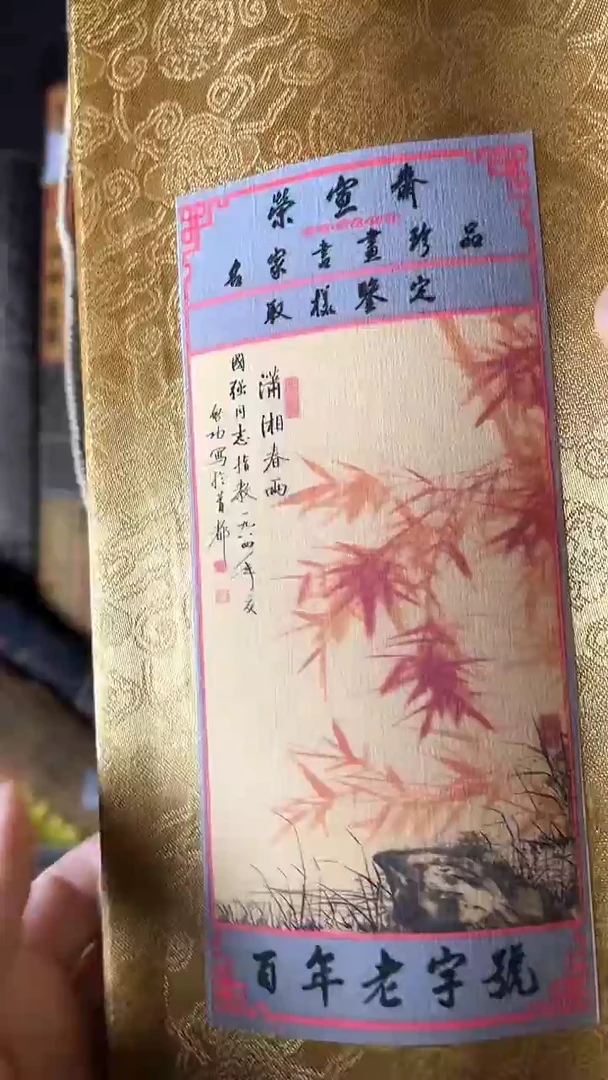 榮宣齋
名家書畫珍品
取樣鑒定
瀟湘春雨
國強同志指教一九八四年夏
啟功寫於首都
百年老字號